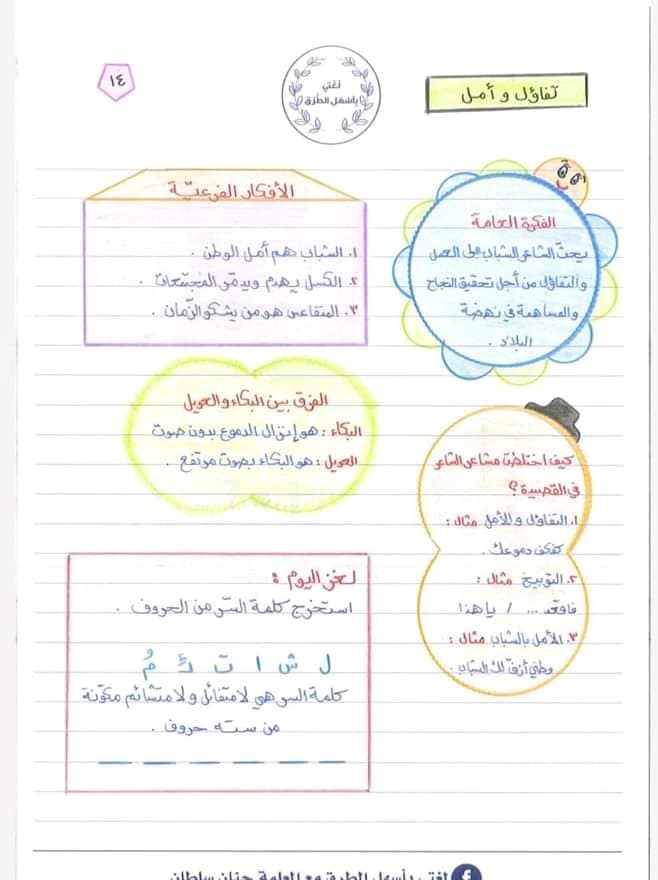 تفاؤل و أمل
لغتي
بأسهل الطرق
١٤
الفكرة العامة
يحثّ الشاعر الشباب على العمل
والتفاؤل من أجل تحقيق النجاح
والمساهمة في نهضة
البلاد .
الأفكار الفرعيّة
١. الشباب هم أمل الوطن .
٢. الكسل يهدم ويدمّر المجتمعات .
٣. المتقاعس هو من يشكو الزّمان .
الفرق بين البكاء والعويل
البكاء : هو إنزال الدموع بدون صوت
العويل : هو البكاء بصوت مرتفع .
كيف اختلطت مشاعر الشاعر
في القصيدة ؟
١. التفاؤل والأمل مثال :
كفكف دموعك .
٢. التوبيخ مثال :
فاقعد ... / يا هذا
٣. الأمل بالشباب مثال :
وطني أزفّ لك الشباب .
لغز اليوم :
استخرج كلمة السّر من الحروف .
ل ش ا ت ئ مُ
كلمة السر هي لا متفائل و لا متشائم مكوّنة
من سته حروف .
لغتي بأسهل الطرق مع المعلمة حنان سلطان